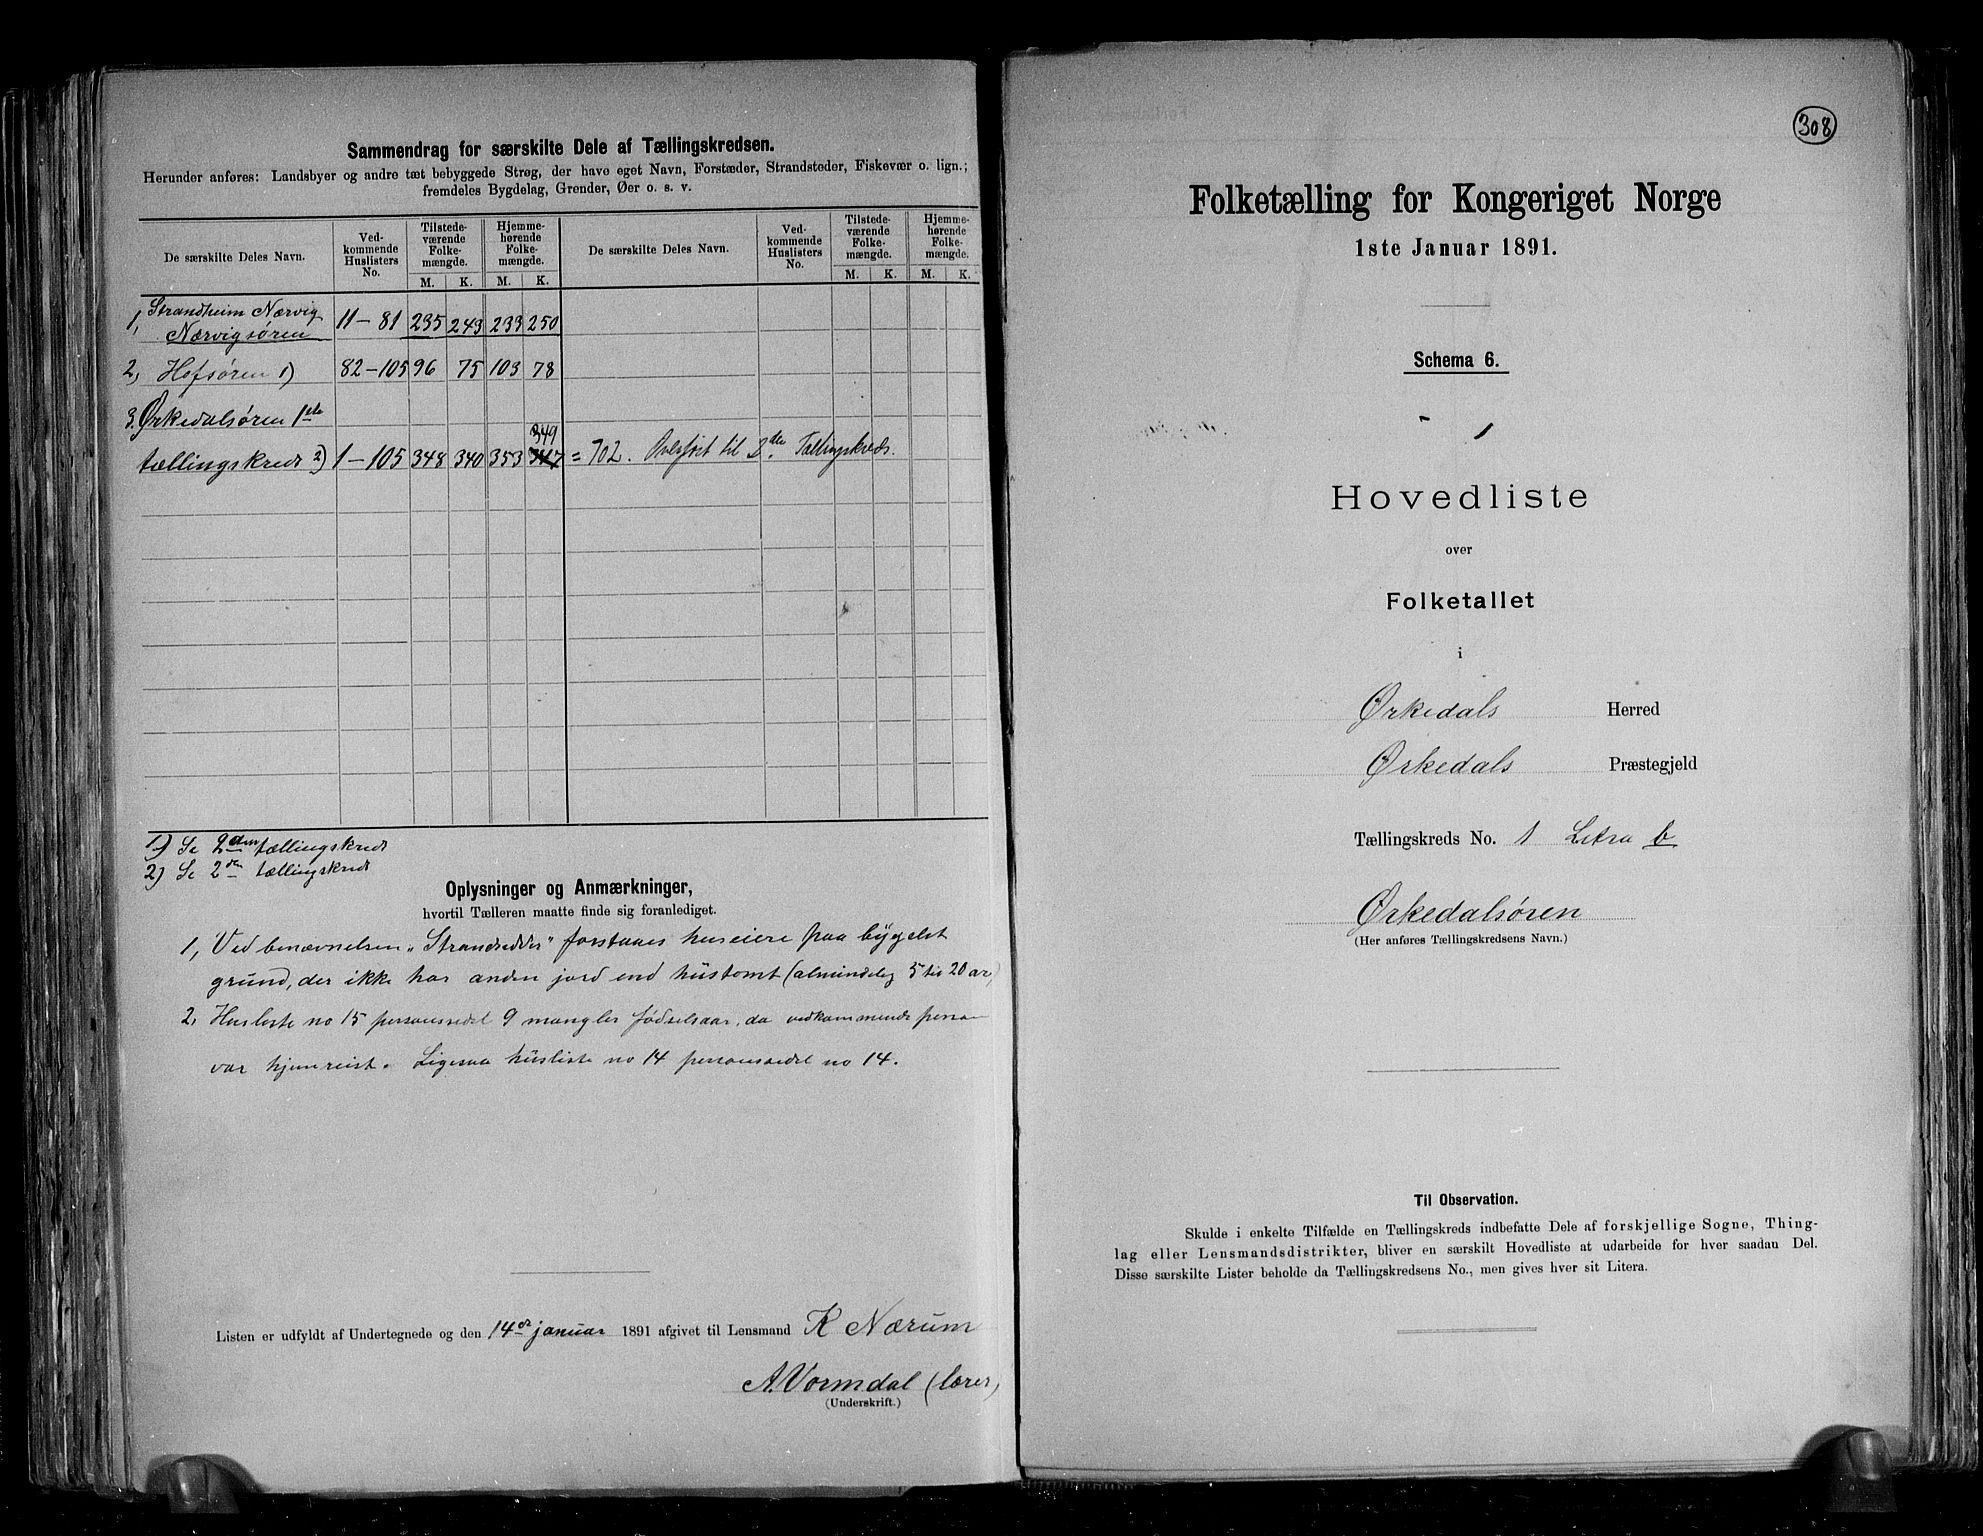 Sammendrag for særskilte Dele af Tællingskredsen.
Herunder anføres: Landsbyer og andre tæt bebyggede Strøg, der have eget Navn, Forstæder, Strandsteder, Fiskevær o. lign.;
fremdeles Bygdelag, Grender, Øer o. s. v.
De særskilte Deles Navn. Ved-kommende Huslisters No. Tilstede-værende Folke-mængde. Hjemme-hørende Folke-mængde. De særskilte Deles Navn. Ved-kommende Huslisters No. Tilstede-værende Folke-mængde. Hjemme-hørende Folke-mængde.
M. K. M. K. M. K. M. K.
1, Strandheim Nærvig
Nærvigsøren 11-81 235 243 233 250
2, Hofsøren 1) 82-105 96 75 103 78
3. Ørkedalsøren 1ste
349
tællingskreds 2) 1-105 348 340 353 347 = 702. Overført til 2den Tællingskreds.
1) Se 2den tællingskreds
2) Se 2den tællingskreds
Oplysninger og Anmærkninger,
hvortil Tælleren maatte finde sig foranlediget.
1, Ved benævnelsen „Strandsidder" forstaaes huseiere paa bygslet
grund, der ikke har anden jord end hustomt (almindelig 5 til 20 ar)
2, Husliste no 15 personseddel 9 mangler fødselsaar, da vedkommende person
var hjemreist. Ligesaa husliste no 14 personsedel no 14.
Listen er udfyldt af Undertegnede og den 14de januar 1891 afgivet til Lensmand K Nærum
A. Vormdal (lærer)
(Underskrift.)
308
Folketælling for Kongeriget Norge
1ste Januar 1891.
Schema 6.
1
Hovedliste
over
Folketallet
i
Ørkedals Herred
Ørkedals Præstegjeld
Tællingskreds No. 1 Litra b
Ørkedalsøren
(Her anføres Tællingskredsens Navn.)
Til Observation.
Skulde i enkelte Tilfælde en Tællingskreds indbefatte Dele af forskjellige Sogne, Thing-
lag eller Lensmandsdistrikter, bliver en særskilt Hovedliste at udarbeide for hver saadan Del.
Disse særskilte Lister beholde da Tællingskredsens No., men gives hver sit Litera.